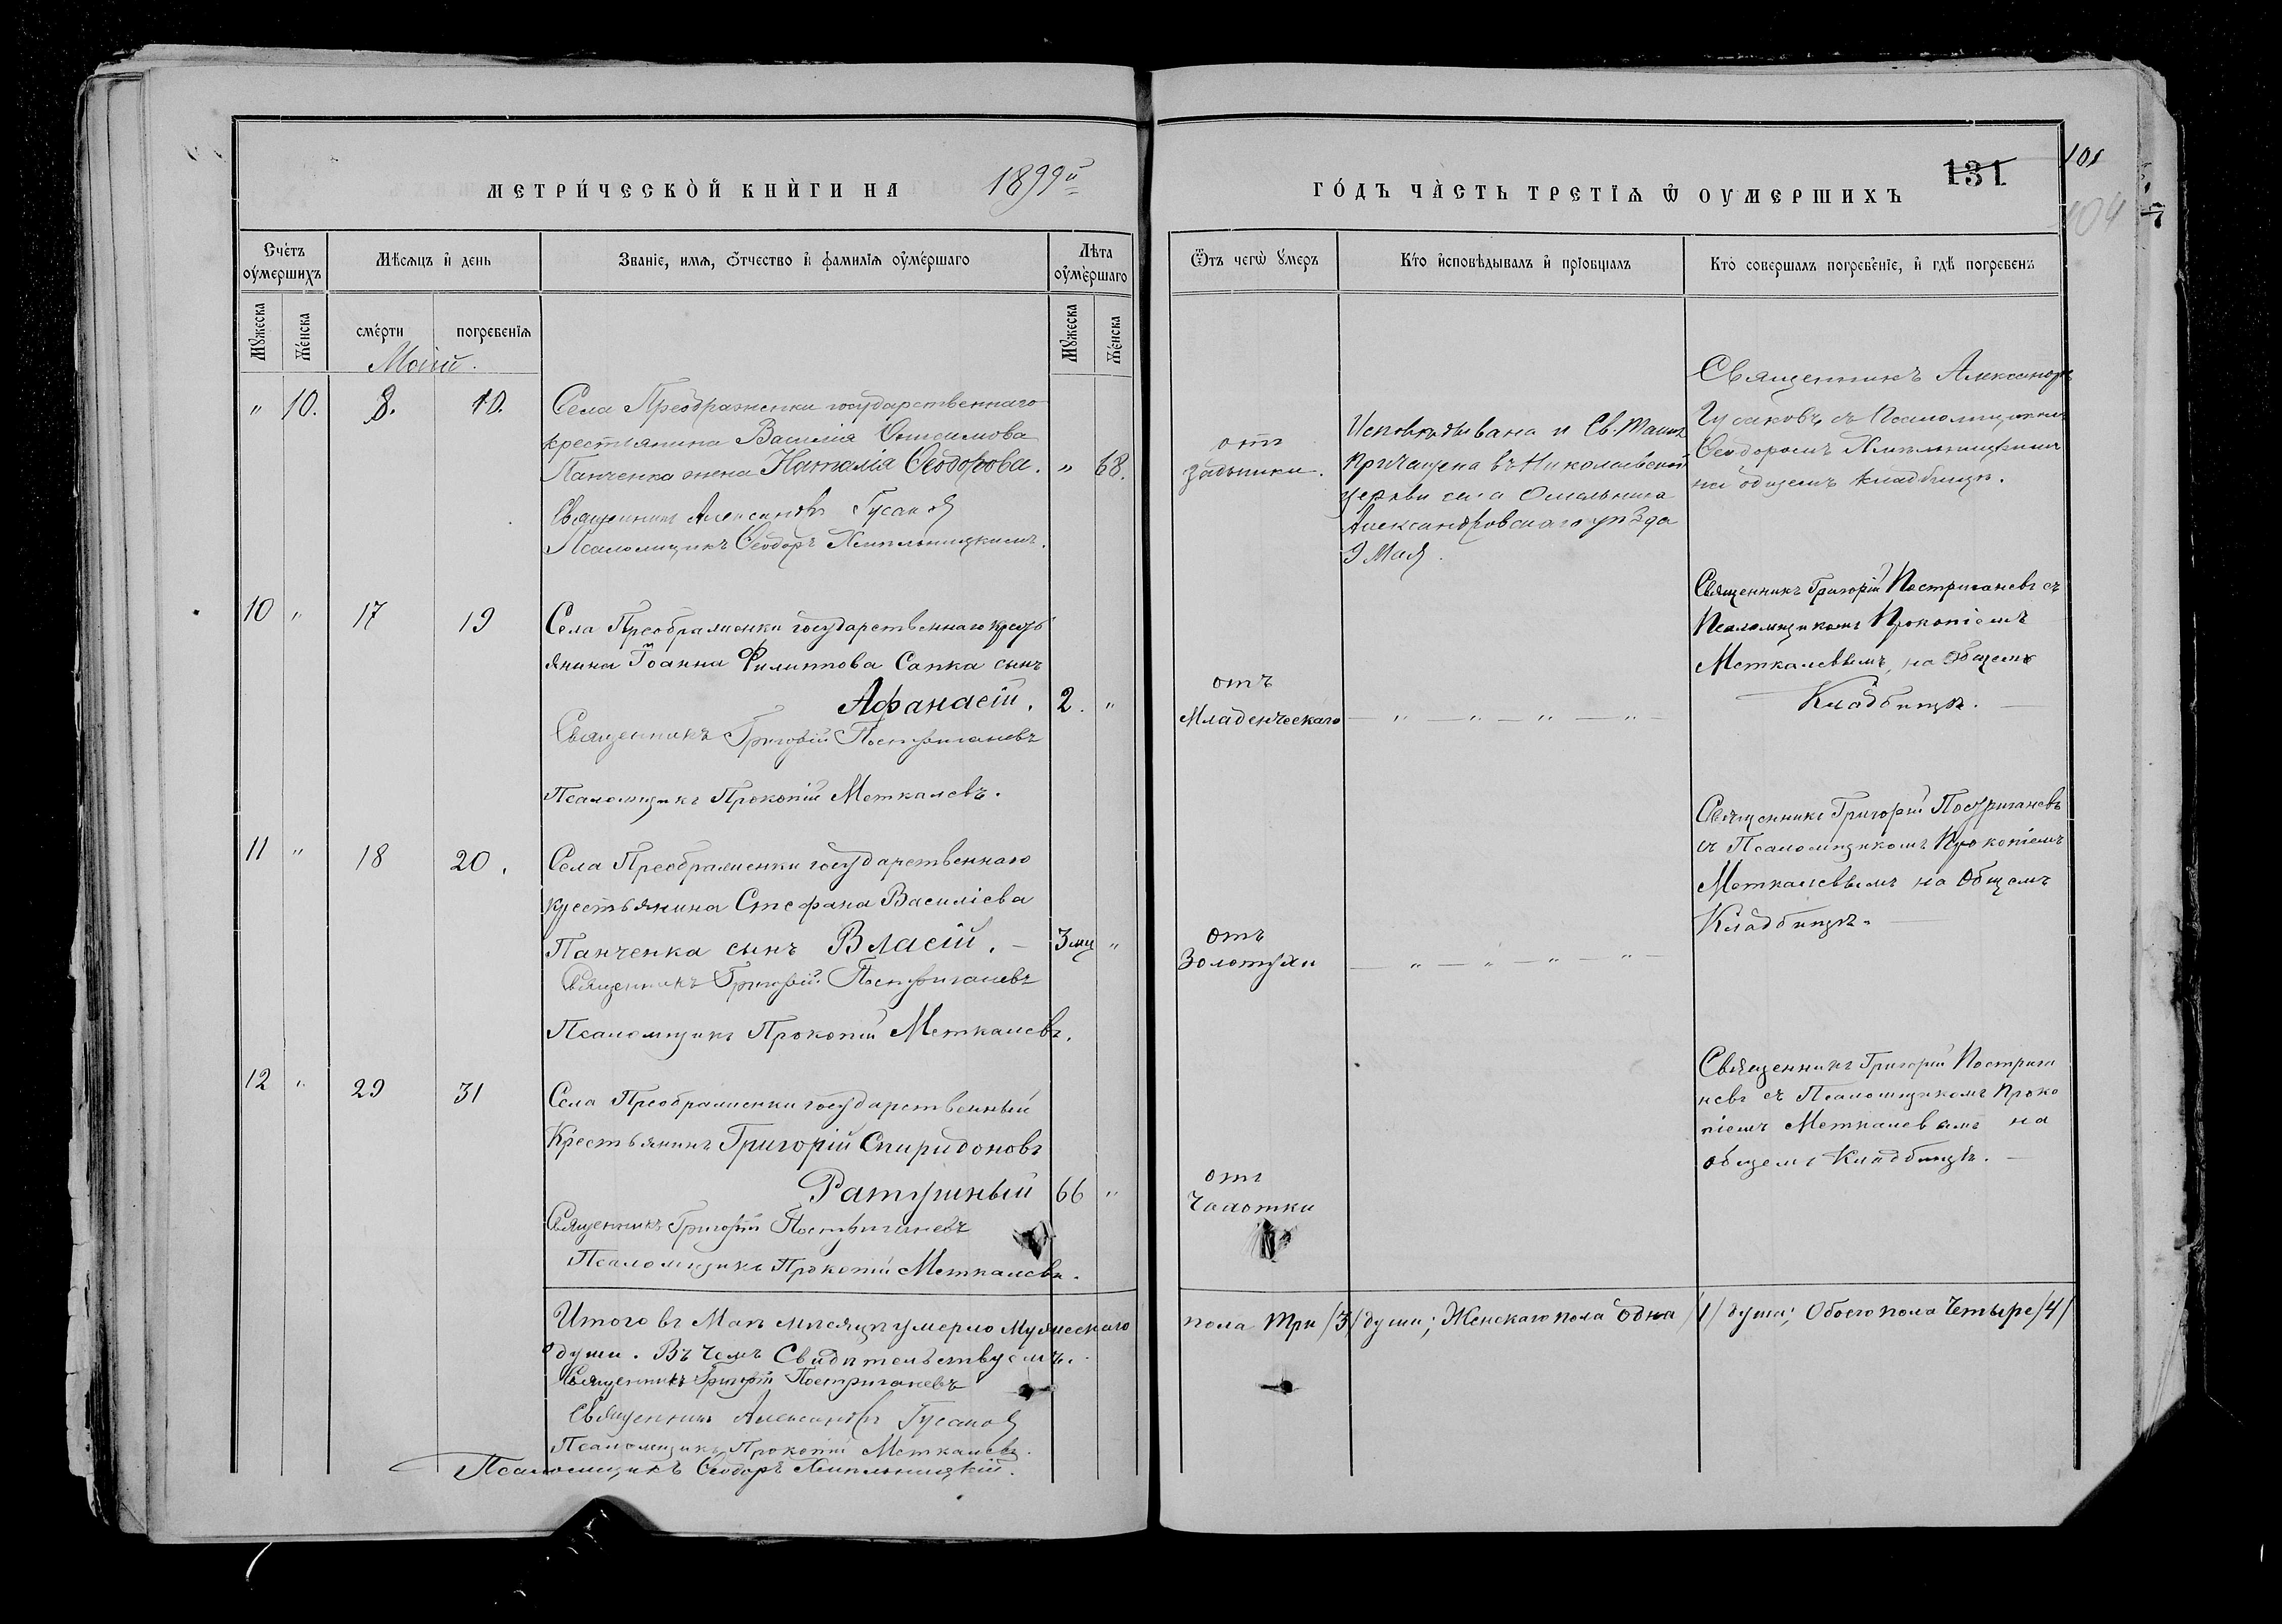 МЕТРИ́ЧЕСКО̀Й КНЍГИ НА 1899й
ГО́ДЪ ЧА̀СТЬ ТРЕТІѦ Ѽ ОУМЕРШИХЪ
131
101
104
Счетъ оумершихъ
Мѣсяцъ и день
Званіе, имя, отчество и фамилія оумершаго
Лѣта оумершаго
Ѿъ чегѡ умеръ
Кто исповѣдывалъ и пріобщалъ
Кто совершалъ погребеніе, и гдѣ погребенъ
Мужеска
Женска
смерти
погребенія
Мужеска
Женска
Маій.
" 10. 8. 10.
Села Преображенки государственнаго
крестьянина Василія Онисимова
Панченка жена Наталія Ѳеодорова. " 68.
Священникъ Александръ Гусаковъ
Псаломщикъ Ѳеодоръ
отъ
Исповѣдывана и Св. Таинъ
Причащена въ Николаевской
церкви села Омельника
Александровскаго уѣзда
9 Мая.
Священникъ Александръ
Гусаковъ съ Псаломщикомъ
Ѳеодоромъ
на общемъ кладбищѣ.
10 " 17 19
Села Преображенки государственнаго кресть
янина Іоанна Филиппова Сапка сынъ
Аѳанасій. 2. "
Священникъ Григорій Постригачевъ
Псаломщикъ Прокопій Меткалевъ.
отъ
Младенческаго — " — " — " — " —
Священникъ Григорій Постригачевъ съ
Псаломщикомъ Прокопіемъ
Меткалевымъ, на Общемъ
Кладбищѣ. —
11 " 18 20.
Села Преображенки государственнаго
крестьянина Стефана Василіева
Панченка сынъ Власій. — 3 мц "
Священникъ Григорій Постригачевъ
Псаломщикъ Прокопій Меткалевъ.
отъ
Золотухи — " — " — " — " —
Священникъ Григорій Постригачевъ
съ Псаломщикомъ Прокопіемъ
Меткалевымъ на Общемъ
Кладбищѣ. —
12 " 29 31
Села Преображенки государственный
Крестьянинъ Григорій Спиридоновъ
Ратушный 66 "
Священникъ Григорій Постригачевъ
Псаломщикъ Прокопій Меткалевъ.
отъ
Чахотки
Священникъ Григорій Пострига
чевъ съ Псаломщикомъ Проко
піемъ Меткалевымъ на
общемъ Кладбищѣ. —
Итого въ Маѣ мѣсяцѣ умерло Мужескаго
пола три /3/ души; Женскаго пола одна /1/ душа; Обоего пола Четыре /4/
души. Въ чемъ Свидѣтельствуемъ.
Священникъ Григорій Постригачевъ
Священникъ Александръ Гусаковъ
Псаломщикъ Прокопій Меткалевъ.
Псаломщикъ Ѳеодоръ